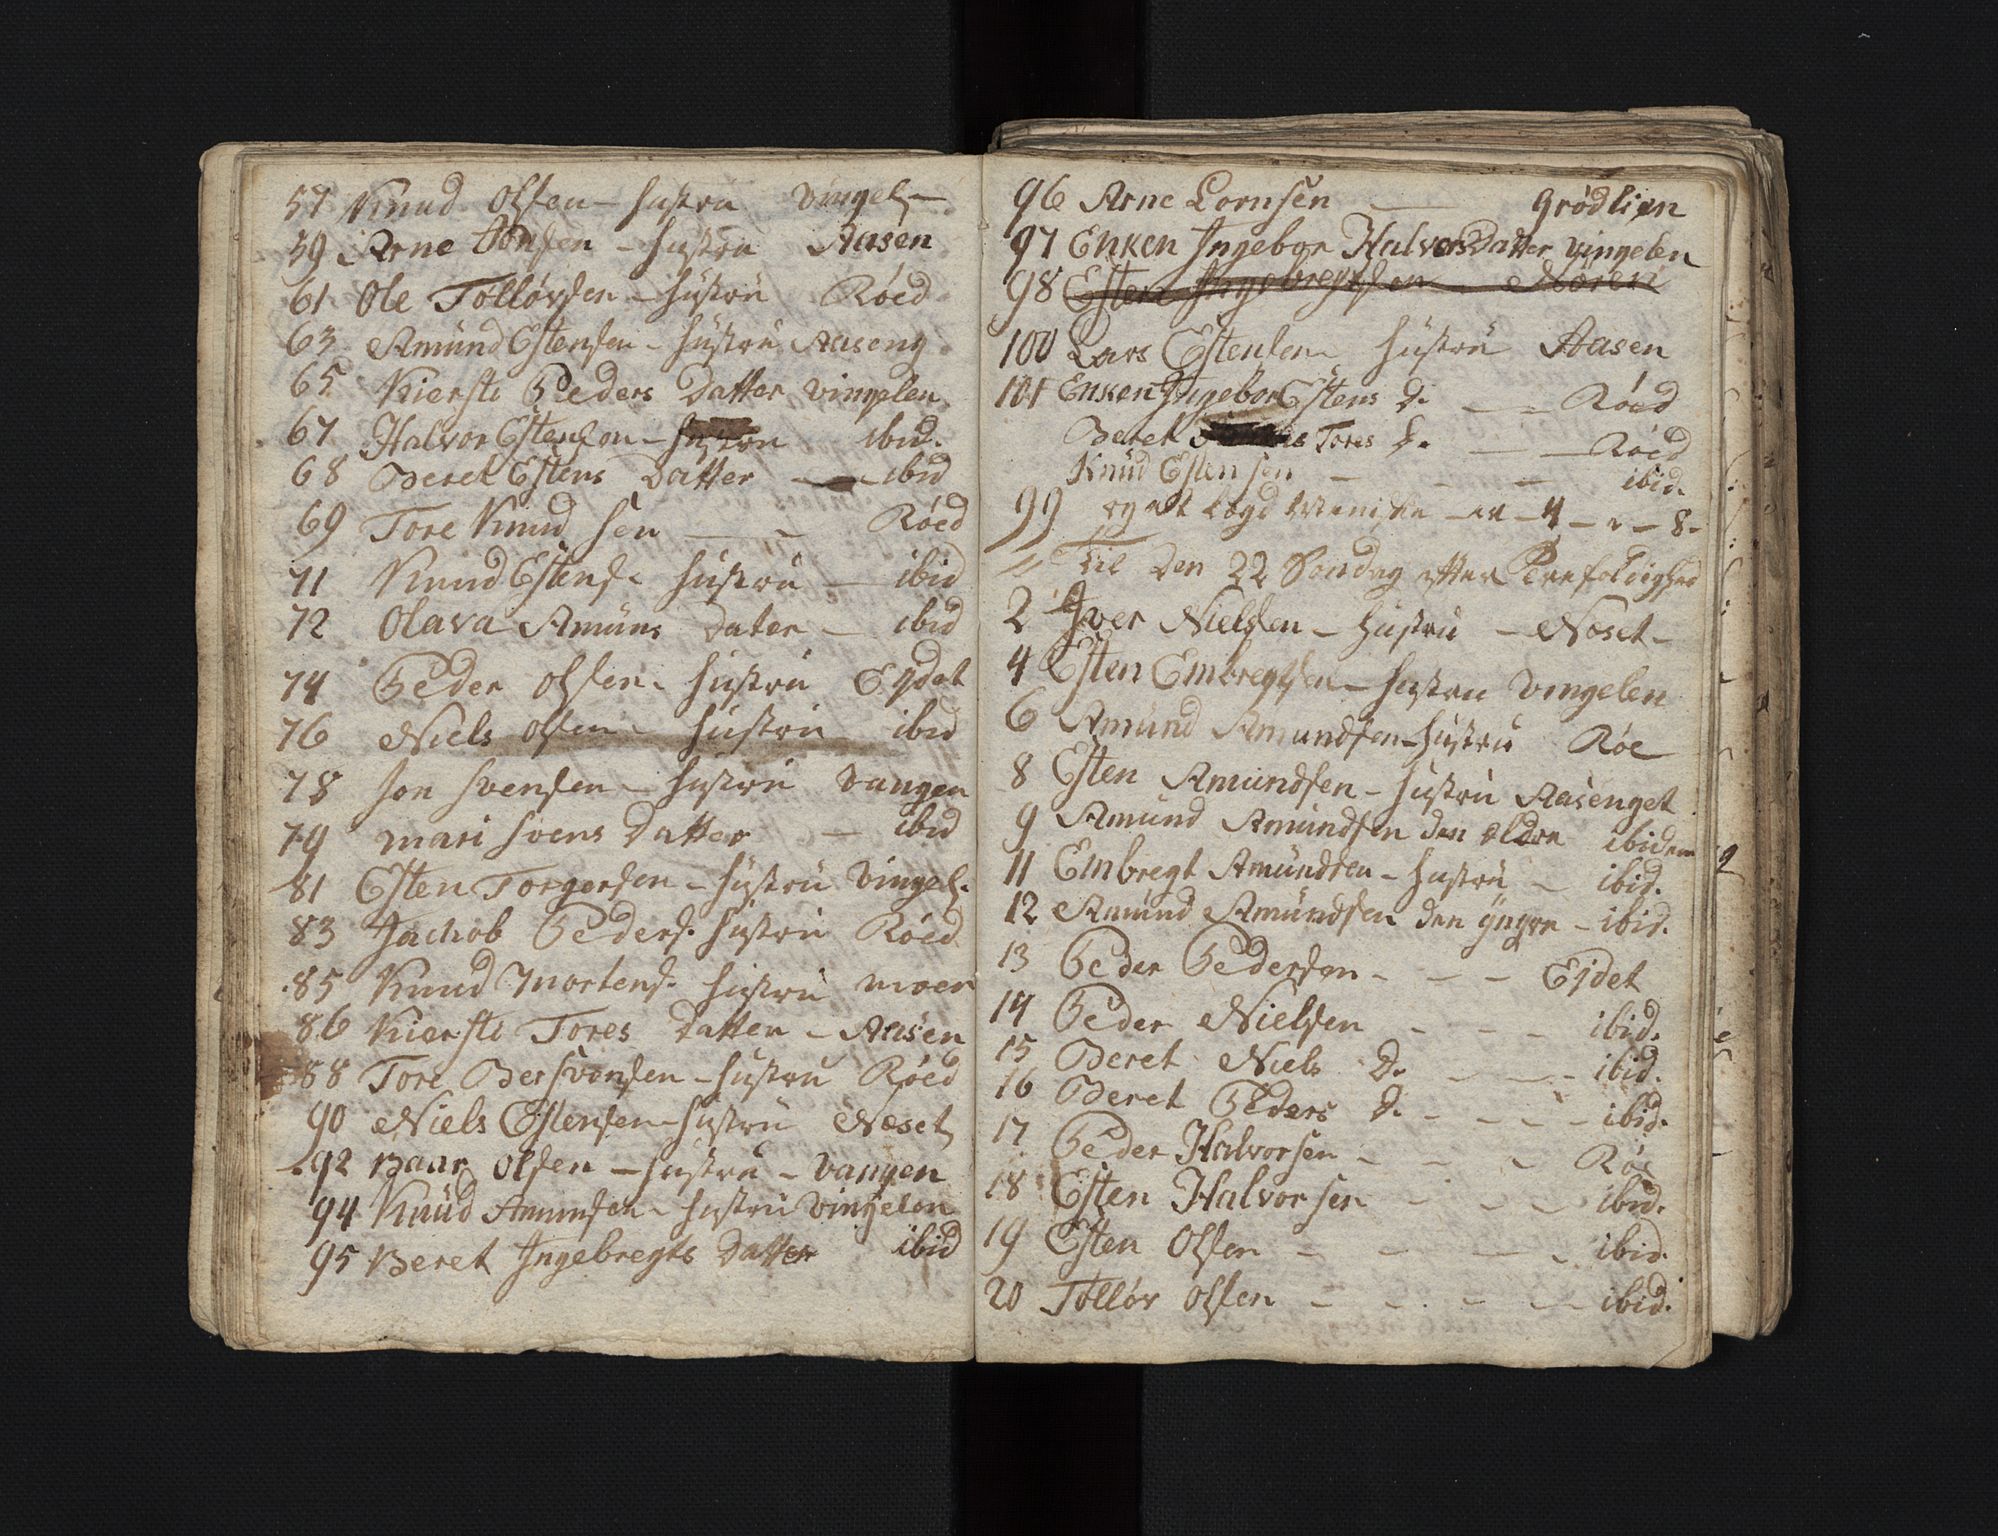 57 Knud Olsen - hustru Vingel -
59 Arne Jonsen - hustru Aasen
61 Ole Tølløvsen - hustru Røed
63 Amünd Estensen - hüstrü Aaseng
65 Kiersti Peders Datter vingelen
67 Halvor Estensøn - hustru ibid.
68 Beret Estens Datter - ibid
69 Tore Knud sen - - Røed
71 Knud Estens. hustru - ibid
72 Olava Amüns Dater - ibid
74 Peder Olsen - hustrü Eydet
76 Niels Olsen - hustrü ibid
78 Jon Svensen - hustrü Vangen
79 mari Svens Datter - ibid
81 Esten Torgersen - hüstrü Vingel.
83 Jachob Peders. hüstrü Røed
85 Knud Mortens. hüstrü moen
86 Kiersti Tores Datter - Aasen
88 Tore Bersvensen - hüstrü Røed
90 Niels Estensen - hüstrü Næset
92 Baar Olsen - hustru - Vangen
94 Knüd Amunsen - hüstrü Vingelen
95 Beret Ingebregts Datter ibid
96 Arne Lornsen - Grødlien
97 Enken Ingebor HalvorsDatter vingelen
98 Esten Ingebregtsen - Noren
100 Lars Estensen hüstrü Aasen
101 Enken Ingebor Estens D. - - Røed
Beret Tores D. - - Røed
Knüd Estensen - - - ibid.
99 og alt - 4 - 8 -
Til Den 22 Søndag efter Trefoldighed
2 Iver Nielsen - hüstrü - Noset -
4 Esten Embregtsen - hustru Vingelen
6 Amünd Amundsen - hüstrü Røe
8 Esten Amündsen - hüstrü Aasenget
9 Amünd Amündsen den eldre ibidem
11 Embregt Amündsen - hustrü - ibid.
12 Amünd Amündsen den yngre - ibid.
13 Peder Pedersen - - - Ejdet
14 Peder Nielsen - - - ibid.
15 Beret Niels D. - - - ibid.
16 Beret Peders D. - - - - ibid.
17 Peder Halvorsen - - - Røe
18 Esten Halvorsen - - - - ibid.
19 Esten Olsen - - - - ibid.
20 Tølløv Olsen - - - - - ibid.